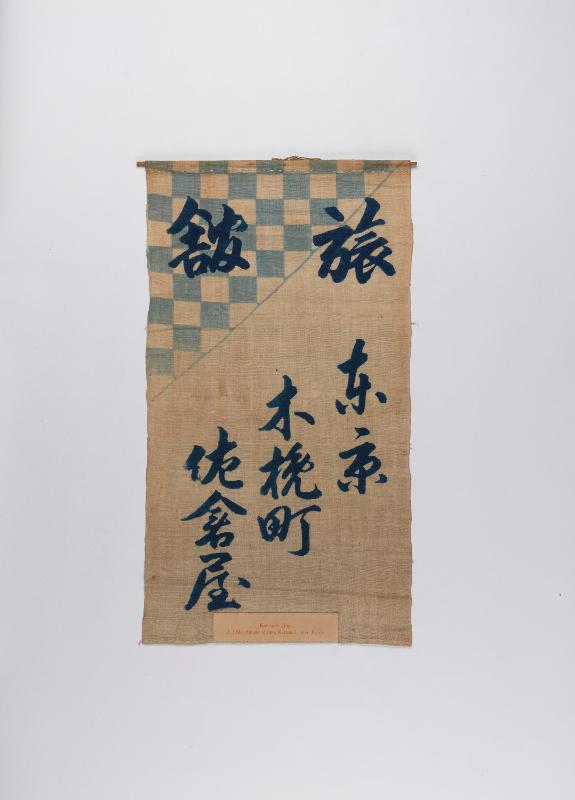 旅舘
東京
木挽町
佐倉屋